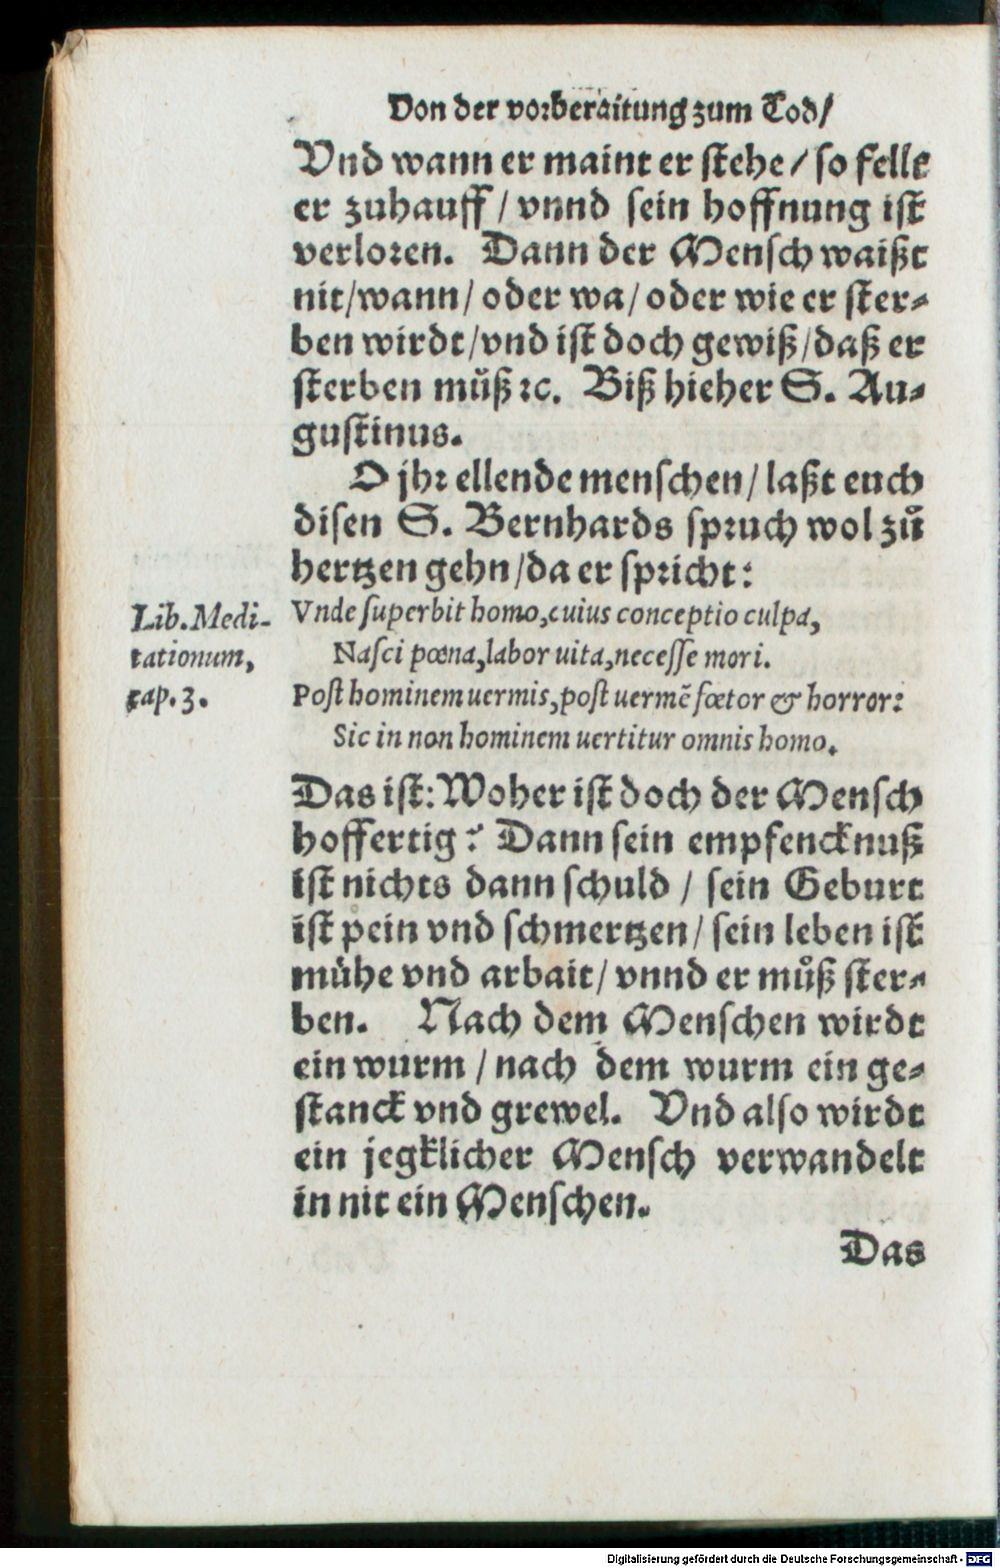 Von der vorberaitung zum Tod/
Vnd wann er maint er stehe / so fellt
er zuhauff / vnnd sein hoffnung ist
verloren. Dann der Mensch waißt
nit/wann/ oder wa/ oder wie er ster⸗
ben wirdt/vnd ist doch gewiß/daß er
sterben můß ꝛc. Biß hieher S. Au⸗
gustinus.
O jhr ellende menschen/ laßt euch
disen S. Bernhards spruch wol zů
hertzen gehn/da er spricht:
Lib. Medi-
tationum,
cap. 3.
Vnde superbit homo, cuius conceptio culpa,
Nasci pœna, labor uita, necesse mori.
Post hominem uermis, post uermẽ fœtor & horror:
Sic in non hominem uertitur omnis homo.
Das ist: Woher ist doch der Mensch
hoffertig? Dann sein empfencknuß
ist nichts dann schuld / sein Geburt
ist pein vnd schmertzen/ sein leben ist
mühe vnd arbait/ vnnd er můß ster⸗
ben. Nach dem Menschen wirdt
ein wurm / nach dem wurm ein ge⸗
stanck vnd grewel. Vnd also wirdt
ein jegklicher Mensch verwandelt
in nit ein Menschen.
Das
Digitalisierung gefördert durch die Deutsche Forschungsgemeinschaft - DFG